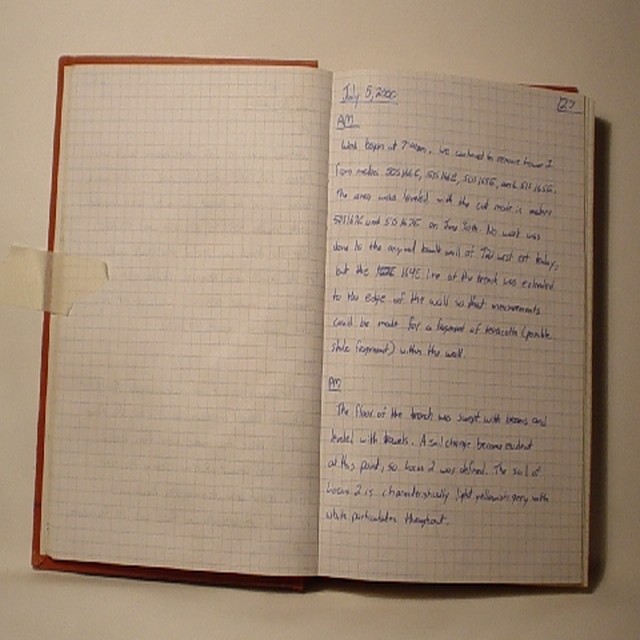 July 5, 2000
27
AM
Work began at 7:00am. We continued to remove Locus 1
from meters 50S166E, 51S166E, 50S165E, and 51S165E.
The area was leveled with the cut made in meters
50S167E and 51S167E on June 30th. No work was
done to the original tumble wall of T20 west ext today,
but the 164E line of the trench was extended
to the edge of the wall so that measurements
could be made for a fragment of terracotta (possible
tile fragment) within the wall.
PM
The floor of the trench was swept with brooms and
leveled with trowels. A soil change became evident
at this point, so Locus 2 was defined. The soil of
Locus 2 is characteristically light yellowish grey with
white particulates throughout.